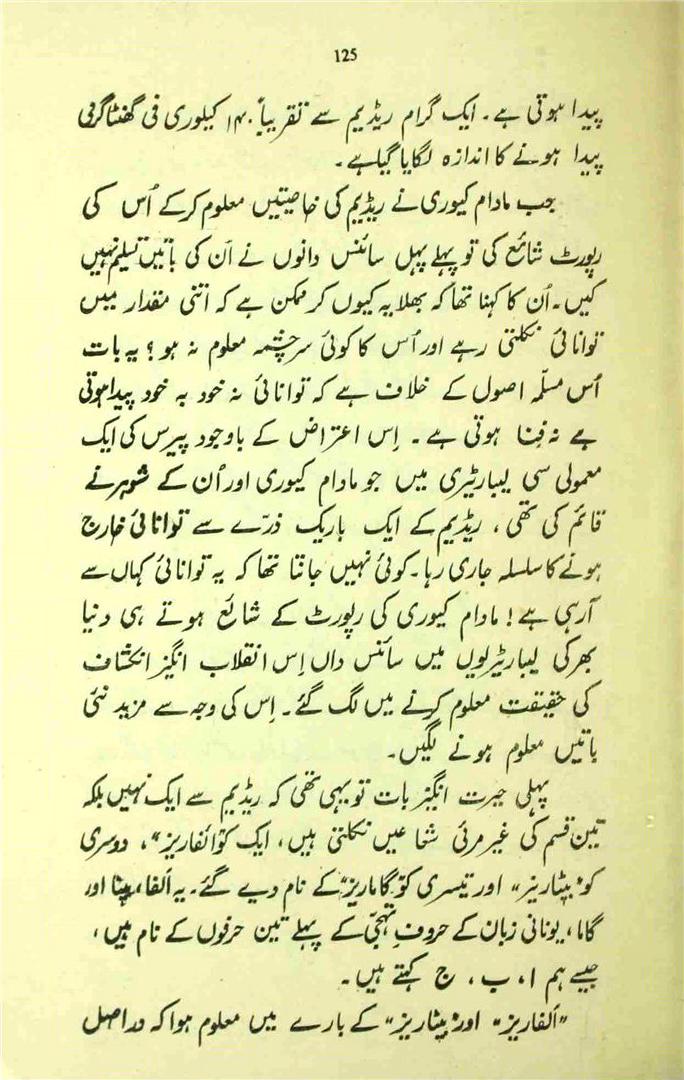 125
پیدا ہوتی ہے۔ ایک گرام ریڈیم سے تقریباً ۱۴۰ کیلوری فی گھنٹا گرمی
پیدا ہونے کا اندازہ لگایا گیا ہے۔
جب مادام کیوری نے ریڈیم کی خاصیتیں معلوم کرکے اُس کی
رپورٹ شائع کی تو پہلے پہل سائنس دانوں نے اُن کی باتیں تسلیم نہیں
کیں۔ اُن کا کہنا تھا کہ بھلا یہ کیوں کر ممکن ہے کہ اتنی مقدار میں
توانائی نکلتی رہے اور اُس کا کوئی سرچشمہ معلوم نہ ہو؟ یہ بات
اُس مسلّمہ اصول کے خلاف ہے کہ توانائی نہ خود بہ خود پیدا ہوتی
ہے نہ فِنا ہوتی ہے۔ اِس اعتراض کے باوجود پیرس کی ایک
معمولی سی لیبارٹیری میں جو مادام کیوری اور اُن کے شوہر نے
قائم کی تھی، ریڈیم کے ایک باریک ذرّے سے توانائی خارج
ہونے کا سلسلہ جاری رہا۔ کوئی نہیں جانتا تھا کہ یہ توانائی کہاں سے
آرہی ہے! مادام کیوری کی رپورٹ کے شائع ہوتے ہی دنیا
بھر کی لیبارٹیریوں میں سائنس داں اِس انقلاب انگیز انکشاف
کی حقیقت معلوم کرنے میں لگ گئے۔ اِس کی وجہ سے مزید نئی
باتیں معلوم ہونے لگیں۔
پہلی حیرت انگیز بات تو یہی تھی کہ ریڈیم سے ایک نہیں بلکہ
تین قسم کی غیر مرئی شعاعیں نکلتی ہیں، ایک کو "الفاریز"، دوسری
کو "بیٹاریز" اور تیسری کو "گاماریز" کے نام دیے گئے۔ یہ الفا، بیٹا اور
گاما، یونانی زبان کے حروفِ تہجّی کے پہلے تین حرفوں کے نام ہیں،
جیسے ہم ا، ب، ج کہتے ہیں۔
"الفاریز" اور "بیٹاریز" کے بارے میں معلوم ہوا کہ دراصل